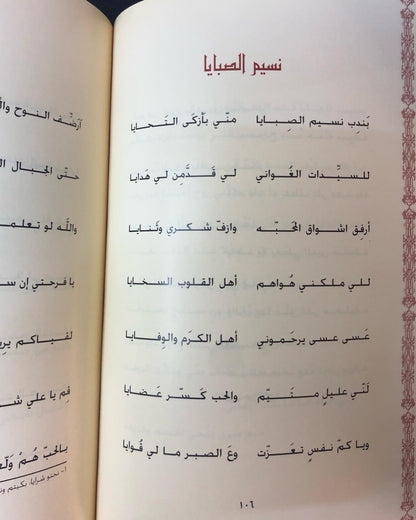 نسيم الصبايا
بَندِب نسيم الصِبايا منّي بأزكَى التَحايا
للسيِّدات الغَواني لي قَدَّمِن لي هَدايا
أرفِق اشواق المَحبّه وازفّ شكري وثَنايا
للي ملكني هُواهم أهل القلوب السخايا
عَسى عسى يرحَموني أهل الكرَم والوِفايا
لَنّي عليلٍ متَيَّم والحب كَسّر عضايا
ويا كمْ نفسٍ تعزّت وعَ الصبر ما لي قُوايا
١٠٦
آرضِّف النوح
حتّى الجبال
واللّه لو تعلمـ
يا فرحتي إن
لقياكم
قم يا علي
بالحبّ هُمْ